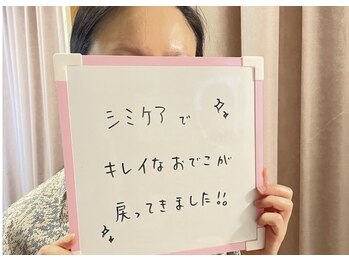 シミケアで
キレイなおでこが
戻ってきました!!